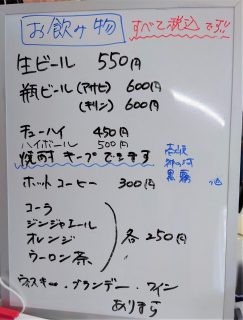 お飲み物 すべて税込です!!
生ビール 550円
瓶ビール (アサヒ) 600円
(キリン) 600円
チューハイ 450円
ハイボール 500円
焼酎キープできます
壱岐
神の河
黒霧
ホットコーヒー 300円
コーラ
ジンジャエール
オレンジ
ウーロン茶
各250円
ウィスキー・ブランデー・ワイン
あります